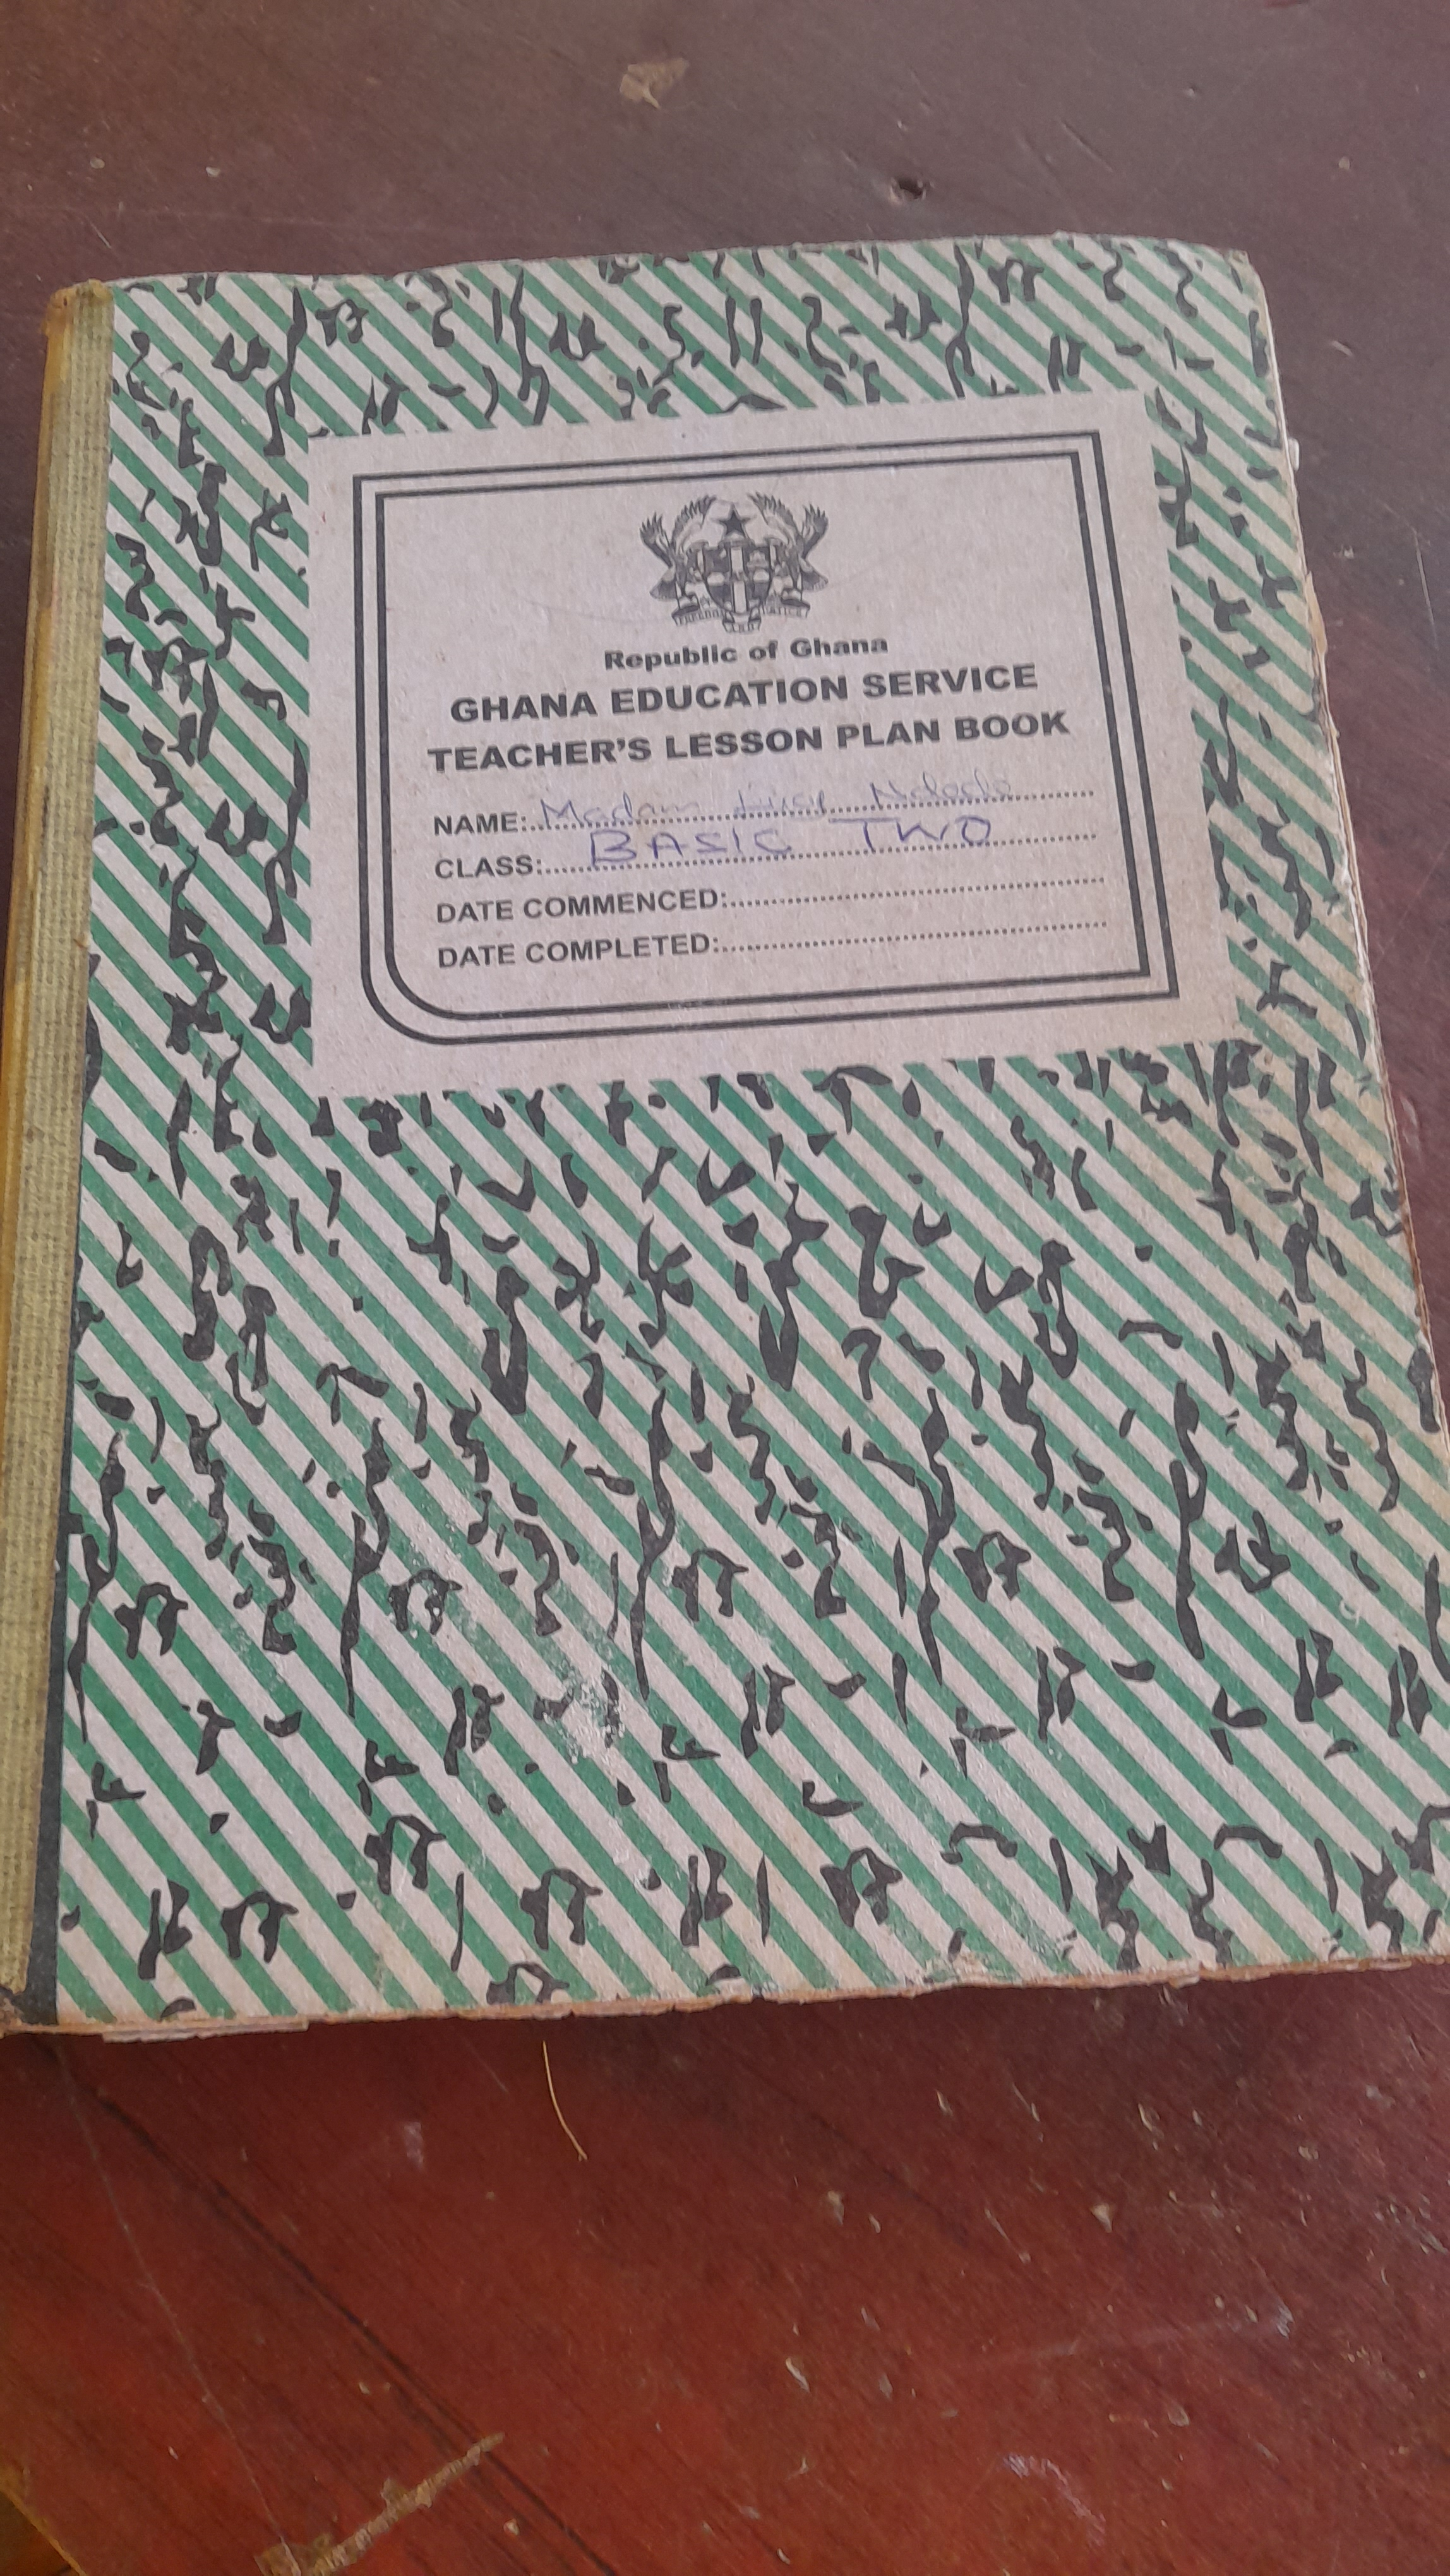 FREEDOM AND JUSTICE
Republic of Ghana
GHANA EDUCATION SERVICE
TEACHER'S LESSON PLAN BOOK
NAME: Madam
CLASS: BASIC TWO
DATE COMMENCED:
DATE COMPLETED: